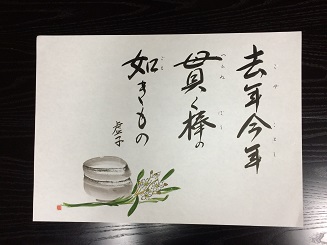 去年今年
貫く棒の
如きもの
虚子